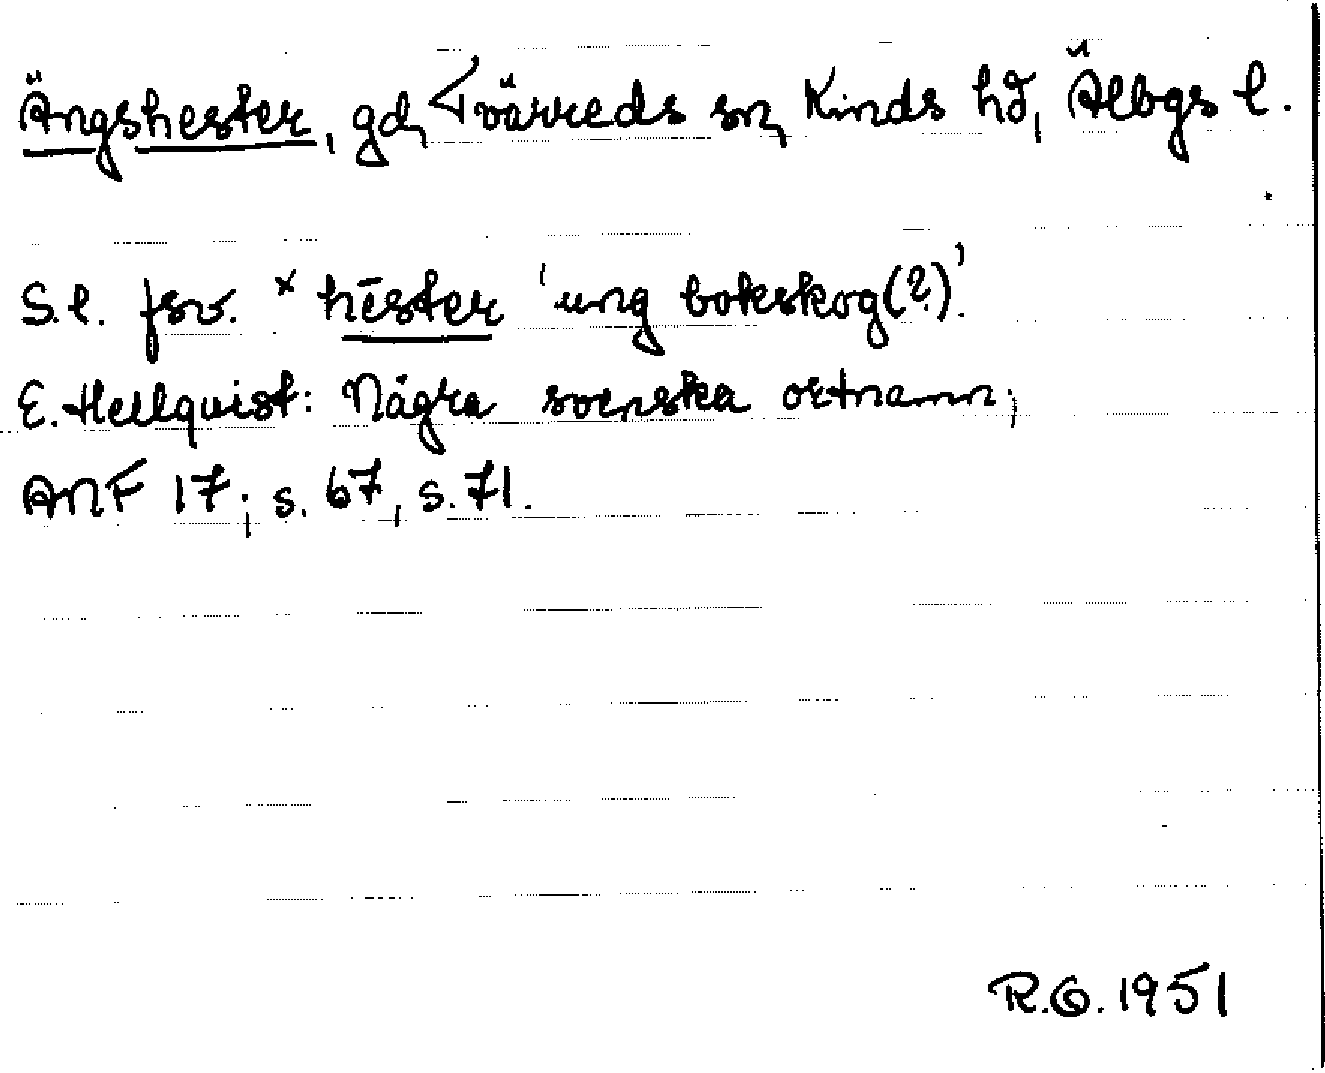 Ängshester, gd, Tvärreds sn, Kinds hd, Älbgs l.
S.l. fsv. × hēster 'ung bokskog(?)'.
E. Hellquist: Några svenska ortnamn;
ANF 17; s. 67, s. 71.
R.G. 1951